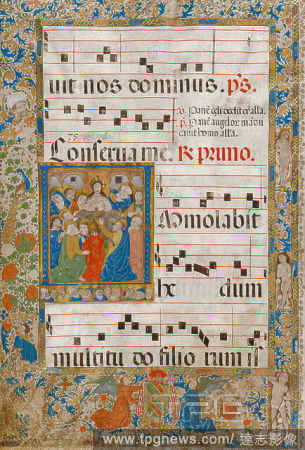 uit nos dominus. p̄s.
℣. Panē celi dedit eis alla.
℟. Panē angelor̄ mādu
cauit homo alla.
75
Conserua me. ℟ primo.
Immolabit
hx dum
multitu do filio rum is
TPG
www.tpgnews.com/達志影像